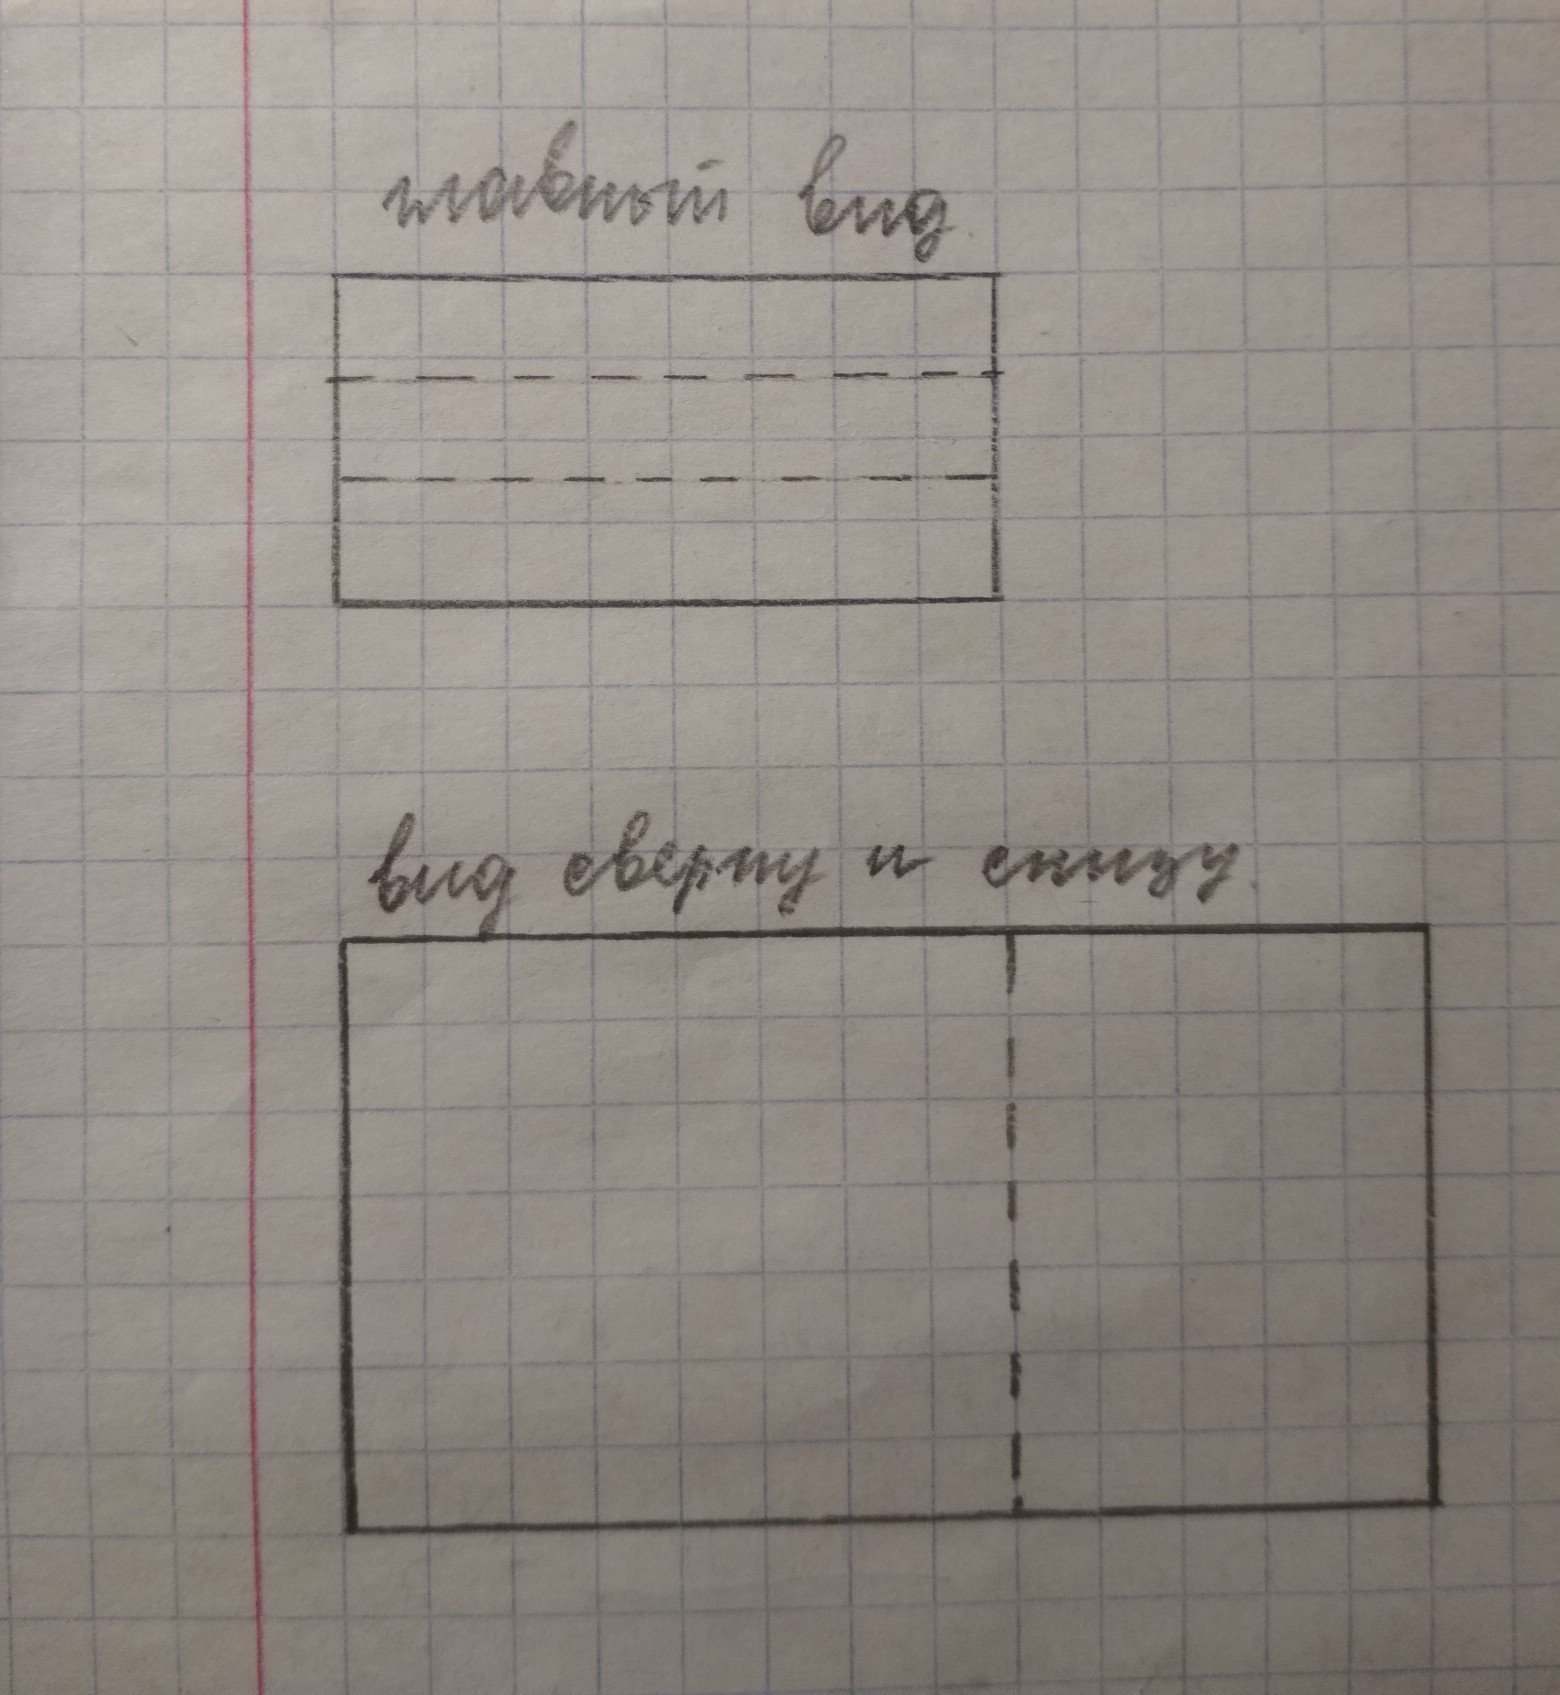 главный вид
вид сверху и снизу